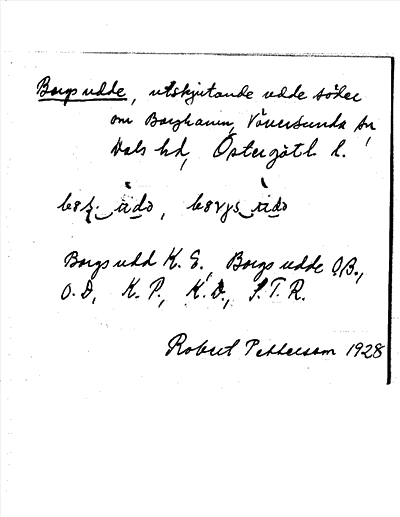 Borgs udde, utskjutande udde söder
om Borghamn, Väversunda sn,
Dals hd, Östergötl l.
Borgs udd K. E., Borgs udde O.B.,
O. D, K. P., K. D., S. T. R.
Robert Pettersson 1928